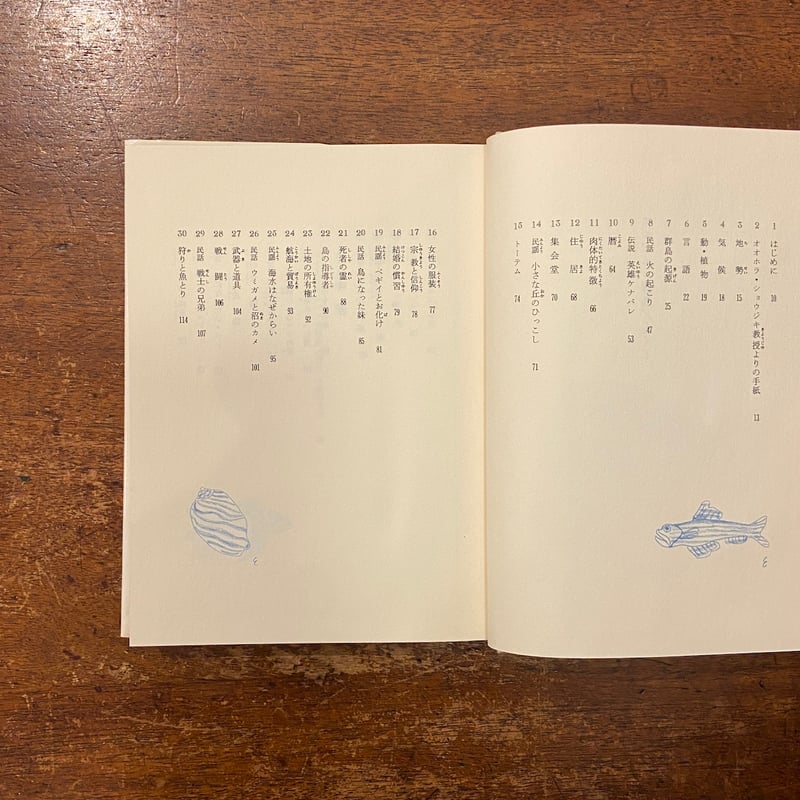 1 はじめに 10
2 オオホラ・ショウジキ教授よりの手紙 11
3 地勢 15
4 気候 18
5 動・植物 19
6 言語 22
7 群島の起源 25
8 民話 火の起こり 47
9 伝説 英雄ケナバレ 53
10 暦 64
11 肉体的特徴 66
12 住居 68
13 集会堂 70
14 民謡 小さな丘のひっこし 71
15 トーテム 74
16 女性の服装 77
17 宗教と信仰 78
18 結婚の慣習 79
19 民謡 ペギイとお化け 81
20 民話 鳥になった妹 85
21 死者の霊 88
22 島の指導者 90
23 土地の所有権 92
24 航海と貿易 93
25 民謡 海水はなぜからい 95
26 民話 ウミガメと沼のカメ 101
27 武器と道具 104
28 戦闘 106
29 民話 戦士の兄弟 107
30 狩りと魚とり 114